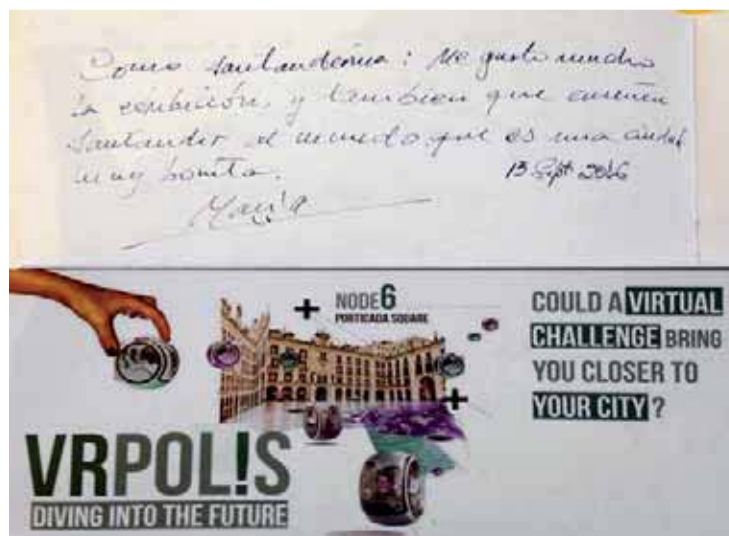 Como Santanderina: Me gusto mucho
la exhibición, y tambien que enseñen
Santander al mundo que es una ciudad
muy bonita.
13 Sept 2016
María
+ NODE6
PORTICADA SQUARE
+
COULD A VIRTUAL
CHALLENGE BRING
YOU CLOSER TO
YOUR CITY?
VRPOL!S
DIVING INTO THE FUTURE